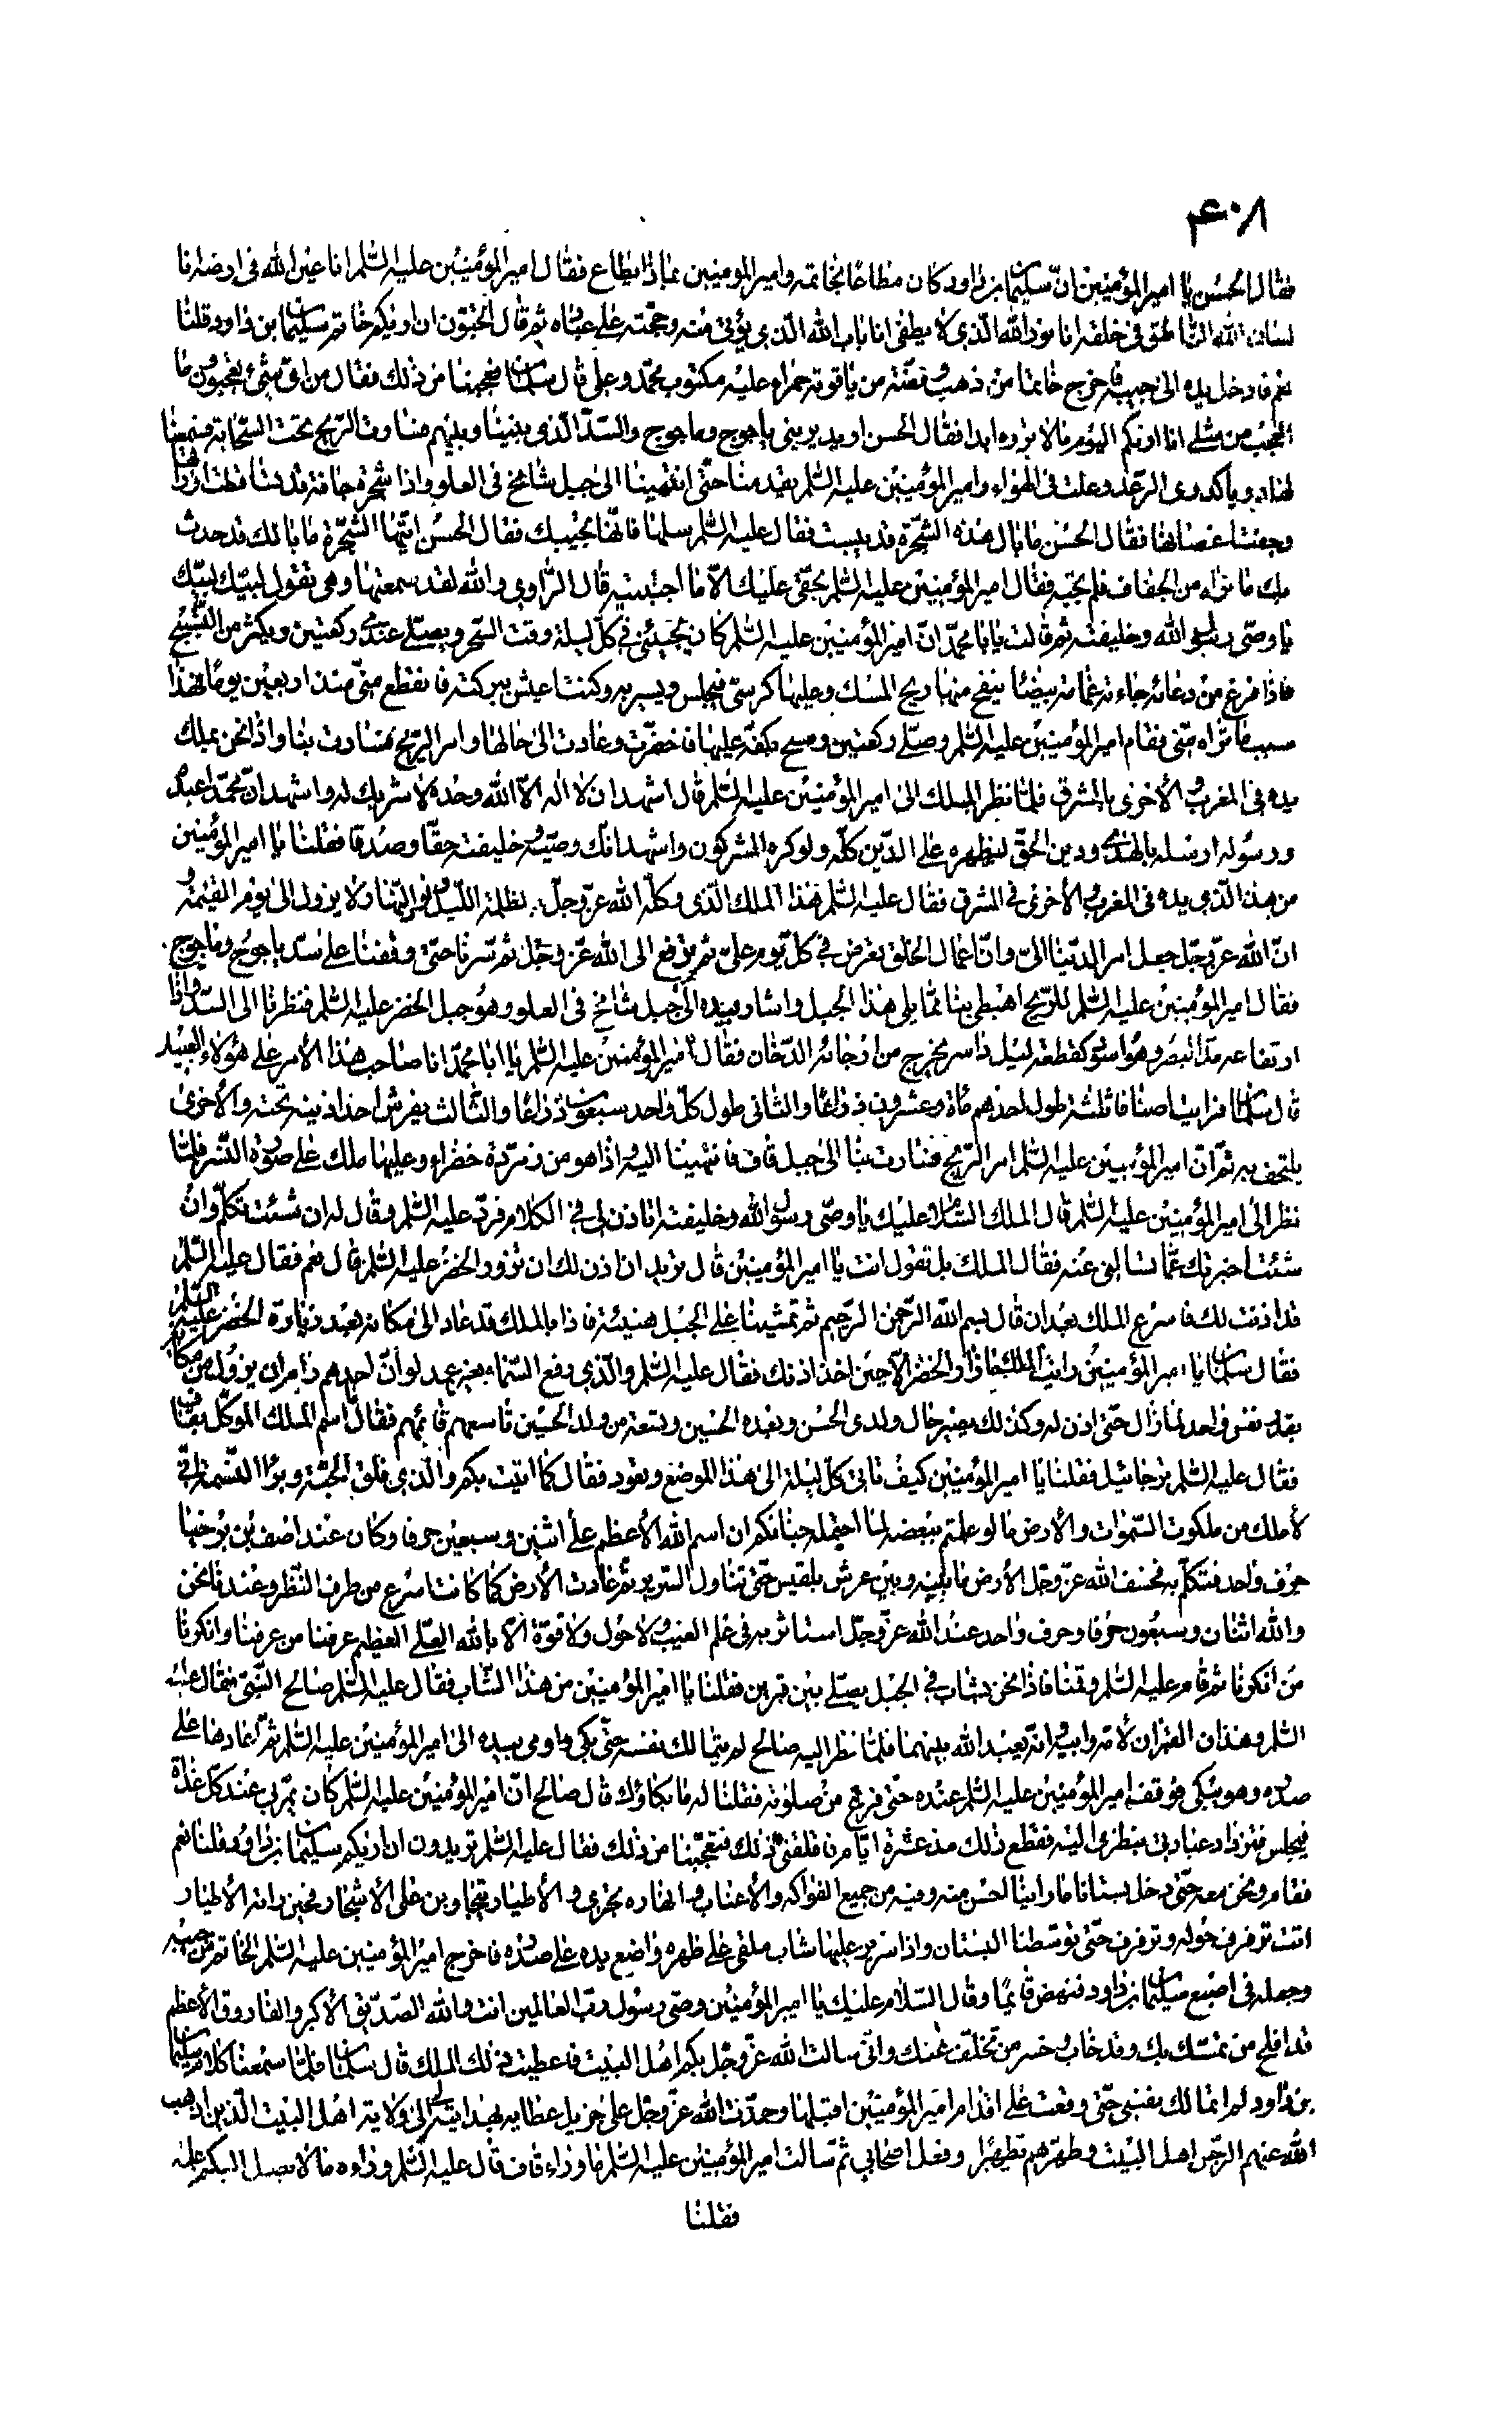 ٤٠٨
فقال الحسن يا امير المؤمنين انّ سليمان بن داود كان مطاعا بخاتمه وامير المومنين بماذا يطاع فقال امير المؤمنين عليه السّلم انا عين الله فى ارضه انا
لسان الله الناطق فى خلقه انا نور الله الّذى لا يطفى انا باب الله الّذى يؤتى منه وحجّته على عباده ثم قال اتحبّون ان اريكم خاتم سليمان بن داود قلنا
نعم فادخل يده الى جيبه فاخرج خاتما من ذهب فصّه من ياقوته حمراء عليه مكتوب محمّد وعلى قال سلمان فعجبنا من ذلك فقال من اىّ شئ تعجبون وما
العجب من مثلى انا اريكم اليوم ما لا تروه ابدا فقال الحسن اريد تريني ياجوج وماجوج والسّدّ الّذى بيننا وبينهم فسارت الرّيح تحت السّحابة فسمعنا
لها دويا كدوى الرّعد وعلت فى الهواء وامير المؤمنين عليه السّلم يقدمنا حتّى انتهينا الى جبل شامخ فى العلو واذا شجرة جافة قد تساقطت اوراقها
وجفت اغصانها فقال الحسن ما بال هذه الشّجرة قد يبست فقال عليه السّلم سلها فانّها تجيبك فقال الحسن ايّتها الشّجرة ما بالك قد حدث
بك ما نراه من الجفاف فلم تجبه فقال امير المؤمنين عليه السّلم بحقّى عليك الّا ما اجبتيه قال الرّاوى والله لقد سمعتها وهى تقول لبّيك لبّيك
يا وصّى رسول الله وخليفته ثم قالت يا ابا محمّد انّ امير المؤمنين عليه السّلم كان يجيئنى فى كلّ ليلة وقت السّحر ويصلّى عندى ركعتين ويكثر من التّسبيح
فاذا فرغ من دعائه جاءته غمامة بيضا ينفخ منها ريح المسك وعليها كرسىّ فيجلس ويسير به وكنت اعيش ببركته فانقطع منّى منذ اربعين يوما فهذا
سبب ما تراه منّى فقام امير المؤمنين عليه السّلم وصلّى ركعتين ومسح بكفّه عليها فاخضرّت وعادت الى حالها وامر الرّيح فسارت بنا واذا نحن بملك
يده فى المغرب والاخرى بالمشرق فلمّا نظر الملك الى امير المؤمنين عليه السّلم قال اشهد ان لا اله الّا الله وحده لا شريك له واشهد انّ محمّدا عبده
ورسوله ارسله بالهدى ودين الحقّ ليظهره على الدّين كلّه ولو كره المشركون واشهد انّك وصيّه وخليفته حقّا وصدقا فقلنا يا امير المؤمنين
من هذا الّذى يده فى المغرب والاخرى فى المشرق فقال عليه السّلم هذا الملك الّذى وكّله الله عزّ وجلّ بظلمة اللّيل وضوء النّهار ولا يزول الى يوم القيمة و
انّ الله عزّ وجلّ جعل امر الدّنيا الىّ وانّ اعمال الخلق تعرض فى كلّ يوم علىّ ثم ترفع الى الله عزّ وجلّ ثم سرنا حتّى وقفنا على سدّ ياجوج وماجوج
فقال امير المؤمنين عليه السّلم للرّيح اهبطى بنا ممّا يلى هذا الجبل واشار بيده الى جبل شامخ فى العلو وهو جبل الخضر عليه السّلم فنظرنا الى السّدّ واذا
ارتفاعه مدّ البصر وهو اسود كقطعة ليل دامس يخرج من ارجائه الدّخان فقال امير المؤمنين عليه السّلم يا ابا محمّد انا صاحب هذا الامر على هؤلاء العبيد
قال سلمان فراينا اصنافا ثلثة طول احدهم مأة وعشرون ذراعا والثانى طول كلّ واحد سبعون ذراعا والثّالث يفرش احد اذنيه تحته والاخرى
يلتحف به ثمّ انّ امير المؤمنين عليه السّلم امر الرّيح فسارت بنا الى جبل قاف فانتهينا اليه واذا هو من زمرّدة خضراء وعليها ملك على صورة النّسر فلمّا
نظر الى امير المؤمنين عليه السّلم قال الملك السّلام عليك يا وصّى رسول الله وخليفته اتاذن لى فى الكلام فردّ عليه السّلم وقال له ان شئت تكلّم وان
شئت اخبرتك عمّا تسالنى عنه فقال الملك بل تقول انت يا امير المؤمنين قال تريد ان اذن لك ان تزور الخضر عليه السّلم قال نعم فقال عليه السّلم
قد اذنت لك فاسرع الملك بعد ان قال بسم الله الرّحمن الرّحيم ثم تمشّينا على الجبل هنيئة فاذا بالملك قد عاد الى مكانه بعد زيارة الخضر عليه السّلم
فقال سلمان يا امير المؤمنين رايت الملك ما زار الخضر الّا حين اخذ اذنك فقال عليه السّلم والّذى رفع السّماء بغير عمد لو انّ احدهم رام ان يزول من مكانه
بقدر نفس واحد لما زال حتّى اذن له وكذلك يصير حال ولدى الحسن وبعده الحسين وتسعة من ولد الحسين تاسعهم قائمهم فقال ما اسم الملك الموكّل بقاف
فقال عليه السّلم ترجائيل فقلنا يا امير المؤمنين كيف تاتى كلّ ليلة الى هذا الموضع وتعود فقال كما اتيت بكم والّذى فلق الحبّة وبرا النّسمة انّى
لأملك من ملكوت السّموات والارض ما لو علمتم ببعضه لما احتمله جنانكم ان اسم الله الاعظم على اثنين وسبعين حرفا وكان عند اصف بن برخيا
حرف واحد فتكلّم به فخسف الله عزّ وجلّ الارض ما بينه وبين عرش بلقيس حتّى تناول السّرير ثم عادت الارض كما كانت اسرع من طرف النّظر وعندنا نحن
والله اثنان وسبعون حرفا وحرف واحد عند الله عزّ وجلّ استاثر به فى علم الغيب ولا حول ولا قوّة الّا بالله العلى العظيم عرفنا من عرفنا وانكرنا
من انكرنا ثم قام عليه السّلم وقمنا فاذا نحن بشاب فى الجبل يصلّى بين قبرين فقلنا يا امير المؤمنين من هذا الشّاب فقال عليه السّلم صالح النّبى فقال عليه
السّلم وهذان القبران لأمّه وابيه وانّه يعبد الله بينهما فلمّا نظر اليه صالح لم يتمالك نفسه حتّى بكى واومى بيده الى امير المؤمنين عليه السّلم ثمّ اعادها على
صدره وهو يبكى فوقف امير المؤمنين عليه السّلم عنده حتّى فرغ من صلوته فقلنا له ما بكاؤك قال صالح انّ امير المؤمنين عليه السّلم كان يمرّ بى عند كلّ غداة
فيجلس فتزداد عبادتى بنظرى اليه فقطع ذلك مذ عشرة ايّام فاقلقنى ذلك فتعجّبنا من ذلك فقال عليه السّلم تريدون ان اريكم سليمان بن داود قلنا نعم
فقام ونحن معه حتّى دخل بستانا ما راينا احسن منه وفيه من جميع الفواكه والاعناب وانهاره تجرى والاطيار يتجاوبن على الاشجار فحين راته الاطيار
اتت ترفرف حوله وترفرف حتّى توسّطنا البستان واذا سرير عليها شاب ملقى على ظهره واضع يده على صدره فاخرج امير المؤمنين عليه السّلم الخاتم من جيبه
وجعله فى اصبع سليمان بن داود فنهض قايما وقال السّلام عليك يا امير المؤمنين ووصّى رسول ربّ العالمين انت والله الصّدّيق الاكبر والفاروق الاعظم
قد افلح من تمسّك بك وقد خاب وخسر من تخلّف عنك وانّى سالت الله عزّ وجلّ بكم اهل البيت فاعطيت ذلك الملك قال سلمان فلمّا سمعنا كلام سليمان
بن داود لم اتمالك نفسى حتّى وقعت على اقدام امير المؤمنين اقبّلها وحمدّت الله عزّ وجلّ على جزيل عطايه بهدايته الى ولاية اهل البيت الّذين اذهب
الله عنهم الرّجس اهل البيت وطهّرهم تطهيرا وفعل اصحابى ثمّ سالت امير المؤمنين عليه السّلم ما وراء قاف قال عليه السّلم وراءه ما لا يصل اليكم علمه
فقلنا